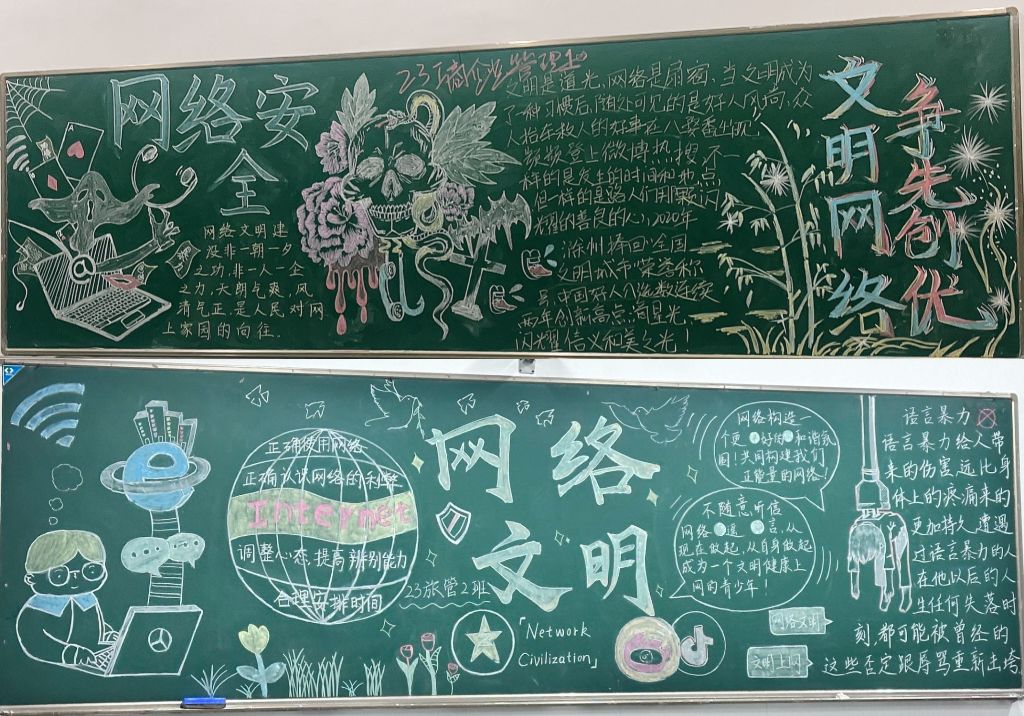 网络安
全
网络文明建
设非一朝一夕
之功,非一人一企
之力,天朗气爽,风
清气正,是人民对网
上家园的向往.
文明是道光,网络是扇窗,当文明成为
了一种习惯后,随处可见的是好人风尚,众
人指
频频登上微博热搜,不一
样的是发生的时间和地点
但一样的是路人们用
耀的善良的心,2020年
滁州捧回"全国
文明城市"荣誉称
号,中国好人
两年创新高点滴星光
闪耀信义和美之光!
文明网络
争先创优
正确使用网络
正确认识网络的利弊
Internet
调整心态,提高辨别能力
合理安排时间
网络
文明
23旅管2班
「Network
Civilization」
网络构造一
个更 好的 和谐家
园!共同构建我们
正能量的网络!
不随意听信
网络 谣 言,从
现在做起,从自身做起
成为一个文明健康上
网的青少年!
网络文明
文明上网
语言暴力
语言暴力给人带
来的伤害,远比身
体上的疼痛来的
更加持久,遭遇
过语言暴力的人
在他以后的人
生任何失落时
刻,都可能被曾经的
这些否定跟辱骂重新击垮